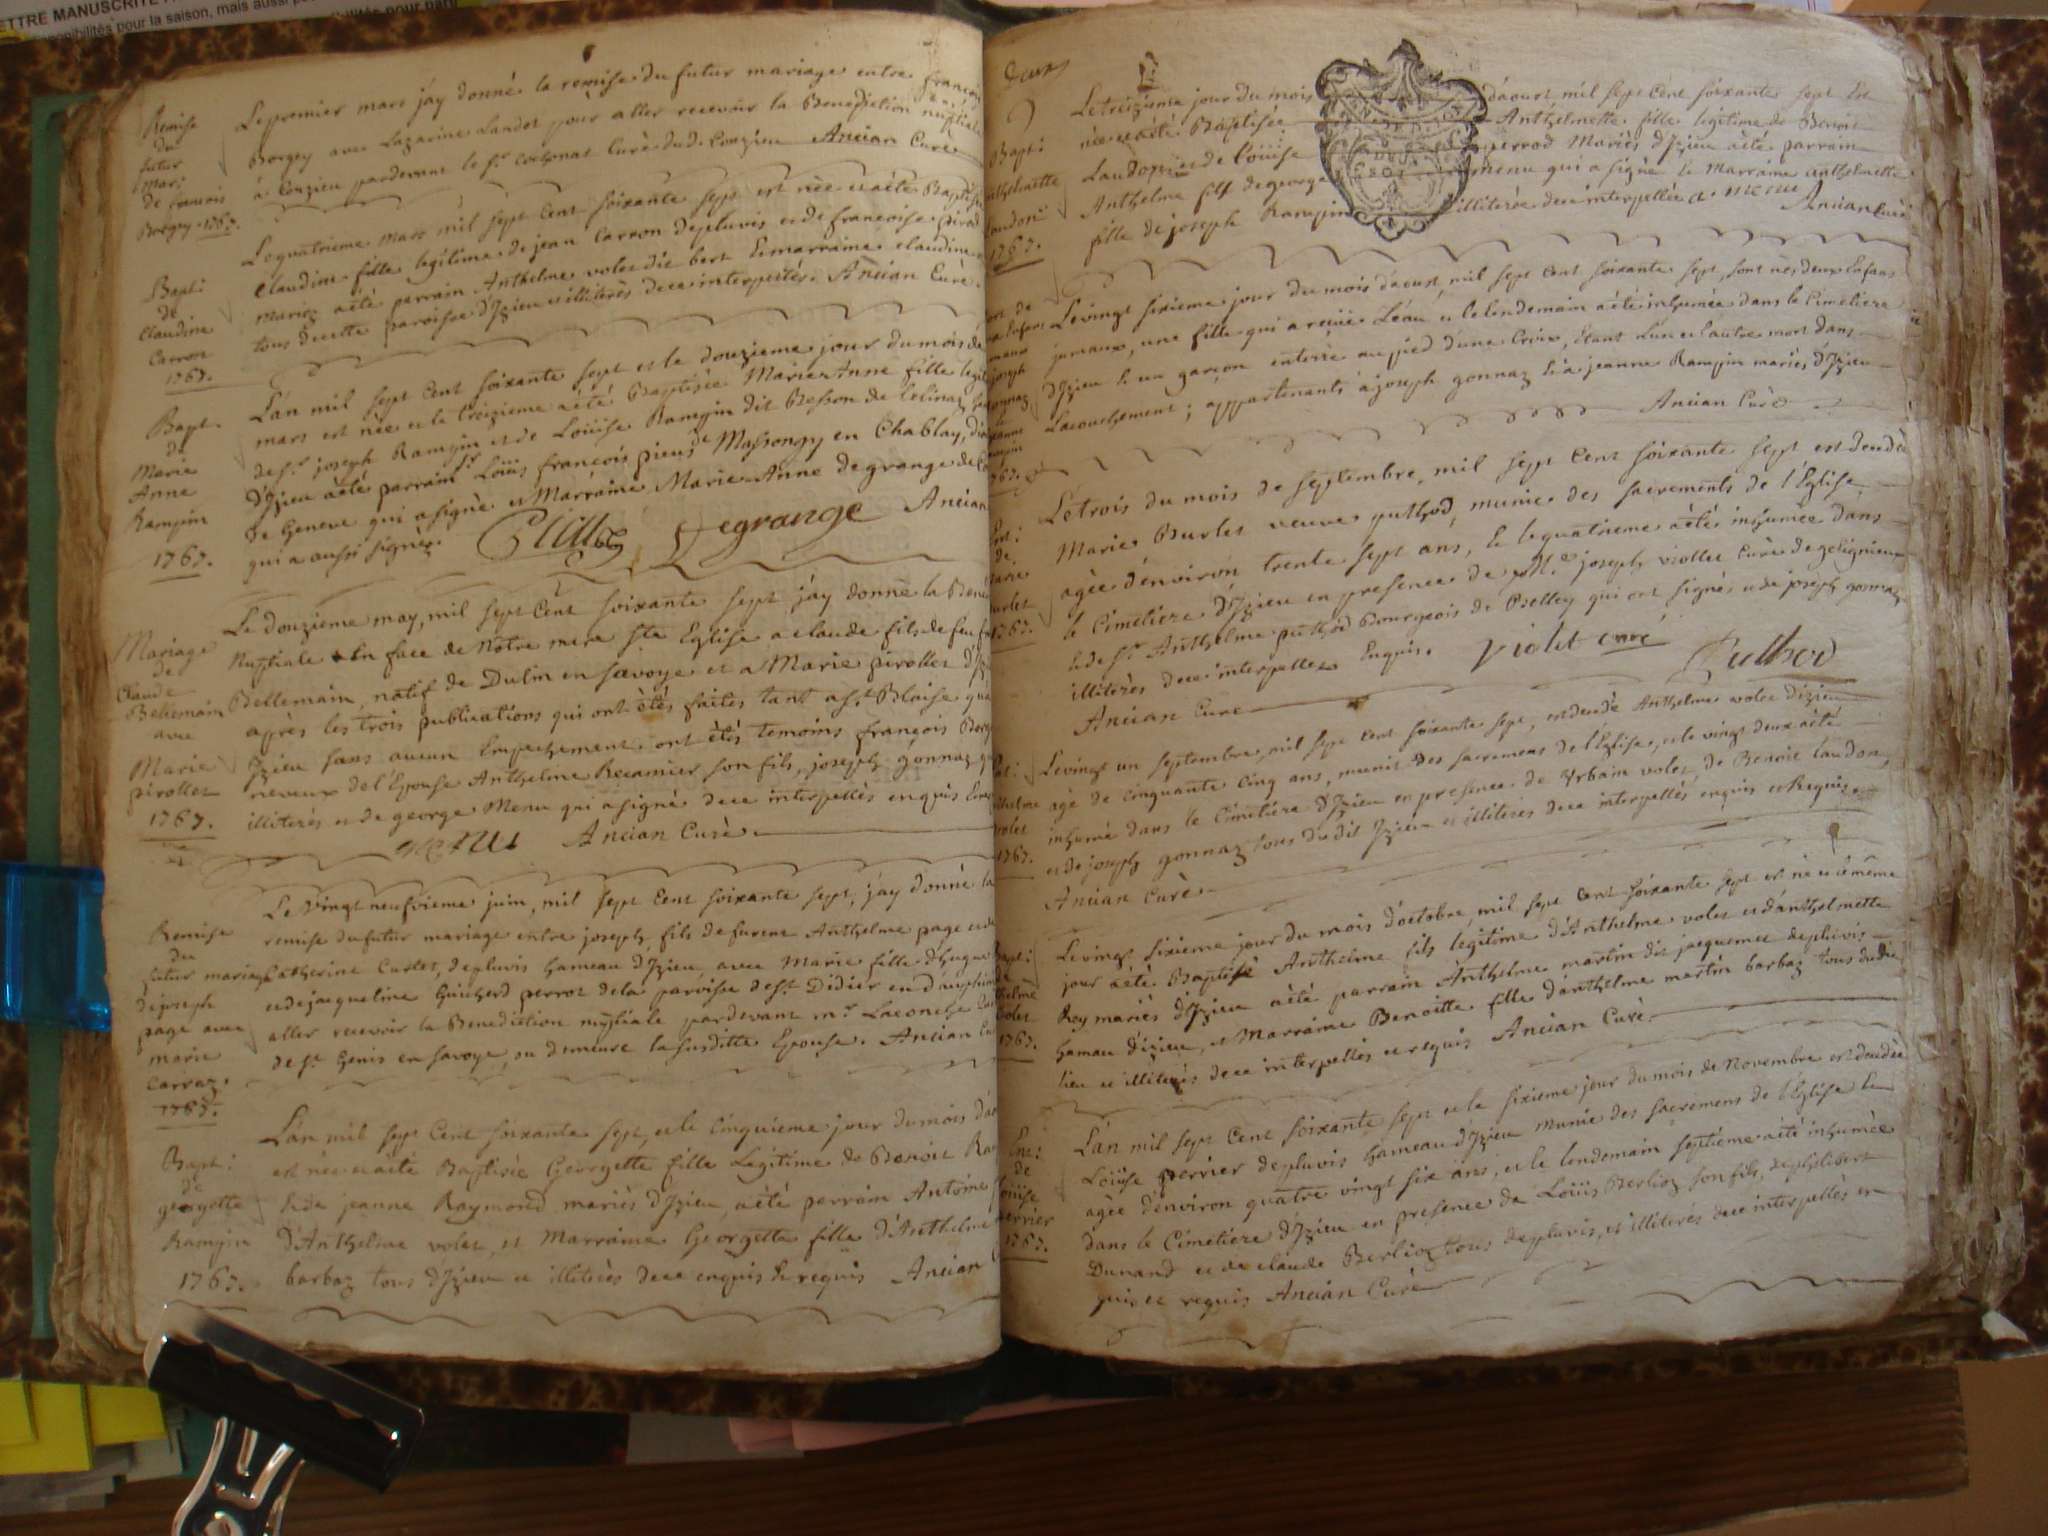 ETTRE MANUSCRITE
ponibilités pour la saison, mais aussi
Remise
du
futur
Mar:
de francois
Borgey 1767.
Le premier mars j'ay donné la remise du futur mariage entre francois
Borgey avec Lazarine Landoz pour aller recevoir la Benediction nuptiale
à Conzieu pardevant le Sr. Cochonat Curé dud. Conzieu Ancian Curé
Bapt:
de
Claudine
Carron
1767.
Le quatrieme Mars mil sept cent soixante sept est née et a été Baptisée
Claudine fille legitime de jean Carron depluvis et de francoise pirod
mariez a été parrain Anthelme volet dit bert Et marraine claudine
tous de cette paroisse d'Izieu et illiterés de ce interpellés. Ancian Curé.
Bapt.
de
Marie
Anne
Rampin
1767.
L'an mil sept Cent soixante sept et le douzieme jour du mois de
mars est née et le treizieme a été Baptisée Marie Anne fille legit
de Sr. joseph Rampin et de Loüise Rampin dit Besson de Celinaz
d'Izieu a été parrain Sr Loüis francois pieus de Massongy en Chablay,
de Geneve qui a signé et Marraine Marie Anne degrange de
qui a aussi signé. Degrange Ancian
Mariage
de
Claude
Bellemain
avec
Marie
pirollet
1767.
Le douzieme may, mil sept Cent soixante sept j'ay donné la Bene
Nuptiale En face de Notre mere Ste Eglise a claude fils de feu
Bellemain, natif de Dulin en savoye et a Marie pirollet d'Iz
après les trois publications qui ont étés faites tant a St. Blaise qu'a
Izieu sans aucun Empechement ont étés temoins françois Borg
neveux de l'Epouse Anthelme Recamier son fils, joseph gonnaz
illiterés et de george Menu qui a signé de ce interpellés enquis
menu Ancian Curé
Remise
du
futur mariage
de joseph
page avec
marie
carraz.
1767.
Le Vingt neufvieme juin, mil sept Cent soixante sept, j'ay donné la
remise du futur mariage entre joseph fils de furent Anthelme page et de
Catherine Curtet, depluvis hameau d'Izieu avec Marie fille d'hugue
et de jacqueline Guicherd perroz de la paroisse de St. Didier en dauphiné
aller recevoir la Benediction nuptiale pardevant mr. Laconche
de St. Genis en savoye, ou demeure la susditte Epouse. Ancian Cu
Bapt:
de
georgette
Rampin
1767.
L'an mil sept Cent soixante sept, et le cinquieme jour du mois d'ao
est née et a été Baptisée Georgette fille Legitime de Benoit Ra
& de jeanne Raymond mariés d'Izieu, a été parrain Antoine
d'Anthelme volet, et Marraine Georgette fille d'Anthelme
barbaz tous d'Izieu et illiterés de ce enquis & requis Ancian
deux
Bapt:
anthelmette
Laudon
1767.
Le treizieme jour du mois d'aoust mil sept Cent soixante sept Est
née et a été Baptisée Anthelmette fille legitime de Benoit
Laudon et de loüise perrod Mariés d'Izieu a été parrain
Anthelme fils de george menu qui a signé & Marraine anthelmette
fille de joseph Rampin illiterée de ce interpellée a. menu Ancian Curé
Le vingt sixieme jour du mois d'aoust, mil sept Cent soixante sept, sont nés deux Enfans
jumaux, une fille qui a reçüe L'eau, et le lendemain a été inhumée dans le Cimetiere
d'Izieu & un garçon enterré au pied d'une Croix, étant l'un et l'autre mort dans
L'acouchement; appartenants a joseph gonnaz & à jeanne Rampin mariés, d'Izieu
Ancian Curé
1767.
Le trois du mois de septembre, mil sept Cent soixante sept est decedée
Marie Burlet veuve puthod, munie des sacrements de l'Eglise
agée d'environ trente sept ans, & le quatrieme a étés inhumée dans
le Cimetiere d'Izieu en presence de Me joseph viollet Curé de gelignieux
& de Sr. Anthelme puthod Bourgeois de Belley qui ont signés et de joseph gonnaz
illiterés de ce interpellez Enquis. Violet curé Puthod
Ancian Curé
1767.
Le vingt un septembre, mil sept Cent soixante sept, est decedé Anthelme volet d'izieu
agé de cinquante cinq ans, munit des sacremens de l'Eglise, et le vingt deux a été
inhumé dans le Cimetiere d'Izieu en presence de Urbain volet, de Benoit laudon,
et de joseph gonnaz tous du dit Izieu et illiterés de ce interpellés enquis et Requis
Ancian Curé
1767.
Le vingt sixieme jour du mois d'octobre, mil sept Cent soixante sept est né et le même
jour a été Baptisé Anthelme fils légitime d'Anthelme volet et d'anthelmette
Roy mariés d'Izieu a été parrain Anthelme martin dit jacquemet depluvis
hameau d'izieu, et Marraine Benoitte fille d'anthelme martin barbaz tous du dit
lieu et illiterés de ce interpellés et requis Ancian Curé
1767.
Ent:
de
Loüise
perrier
1767.
L'an mil sept Cent soixante sept et le sixieme jour du mois de Novembre est decedée
Loüise perrier depluvis hameau d'Izieu munie des sacremens de l'Eglise &
agée d'environ quatre vingt six ans, et le lendemain septieme a été inhumée
dans le Cimetiere d'Izieu en presence de Loüis Berlioz son fils, de philibert
Dunand et de claude Berlioz tous depluvis, et illiterés de ce interpellés en
quis et requis Ancian Curé